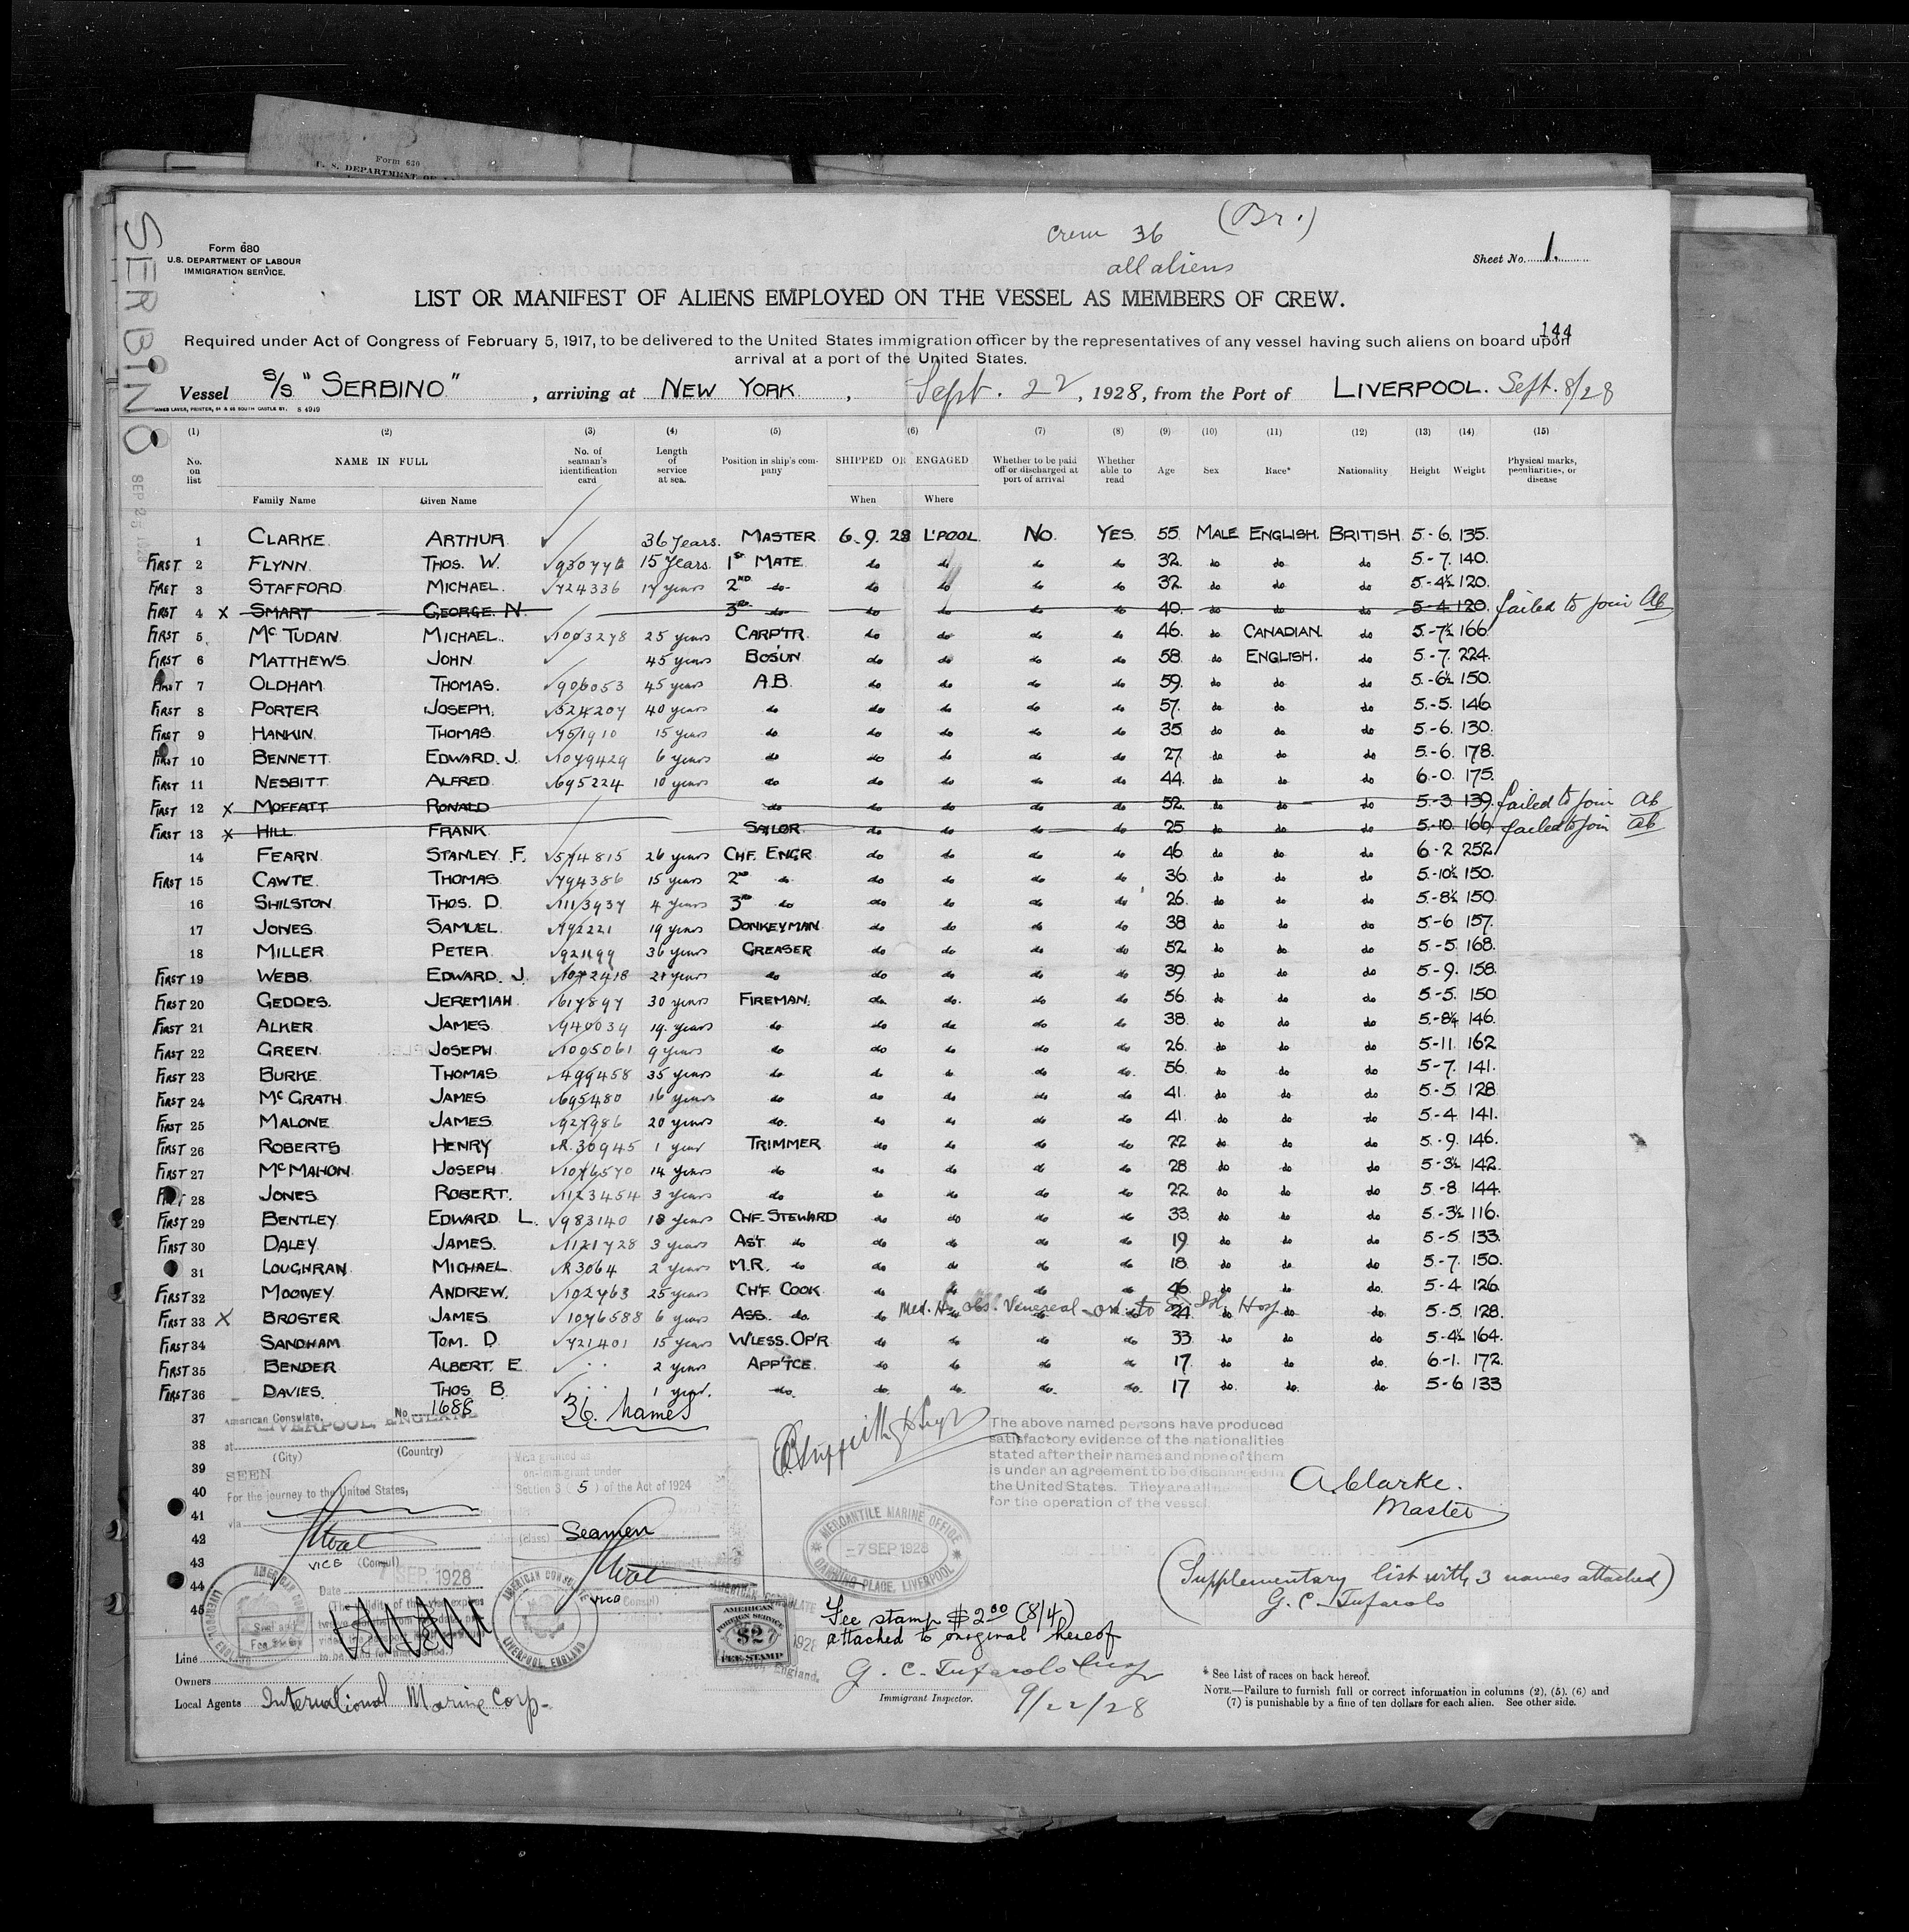 Form 630
U. S. DEPARTMENT OF
SERBINO
SEP 25 1928
Crew 36 (Br.)
all aliens
Form 680
U.S. DEPARTMENT OF LABOUR
IMMIGRATION SERVICE.
Sheet No. 1.
LIST OR MANIFEST OF ALIENS EMPLOYED ON THE VESSEL AS MEMBERS OF CREW.
144
Required under Act of Congress of February 5, 1917, to be delivered to the United States immigration officer by the representatives of any vessel having such aliens on board upon
arrival at a port of the United States.
Vessel S/S "SERBINO", arriving at NEW YORK, Sept. 22, 1928, from the Port of LIVERPOOL. Sept. 8/28
JAMES LAVER, PRINTER, 64 & 66 SOUTH CASTLE ST. S 4949
(1) (2) (3) (4) (5) (6) (7) (8) (9) (10) (11) (12) (13) (14) (15)
No. on list NAME IN FULL No. of seaman's identification card Length of service at sea. Position in ship's company SHIPPED OR ENGAGED Whether to be paid off or discharged at port of arrival Whether able to read Age Sex Race* Nationality Height Weight Physical marks, peculiarities, or disease
Family Name Given Name When Where
1 CLARKE ARTHUR 36 Years. MASTER 6.9.28 L'POOL. No. YES. 55 MALE ENGLISH. BRITISH 5-6. 135.
FIRST 2 FLYNN. THOS. W. 930776 15 Years. 1st MATE do do do do 32. do do do 5-7. 140.
FIRST 3 STAFFORD MICHAEL. 724336 17 years 2ND do do do do do 32. do do do 5-4½ 120.
FIRST 4 X SMART GEORGE. N. 3RD do do do do do 40. do do do 5-4 120. failed to join AB
FIRST 5 McTUDAN MICHAEL. 1003278 25 years CARP'TR. do do do do 46. do CANADIAN. do 5-7½ 166
FIRST 6 MATTHEWS JOHN 45 years BOS'UN do do do do 58. do ENGLISH. do 5-7. 224.
FIRST 7 OLDHAM THOMAS. 906053 45 years A.B. do do do do 59. do do do 5-6½ 150.
FIRST 8 PORTER JOSEPH. 524207 40 years do do do do do 57. do do do 5-5. 146.
FIRST 9 HANKIN. THOMAS. 751910 15 years do do do do do 35 do do do 5-6. 130.
FIRST 10 BENNETT. EDWARD. J. 1079429 6 years do do do do do 27. do do do 5-6. 178.
FIRST 11 NESBITT. ALFRED. 695224 10 years do do do do do 44. do do do 6-0. 175.
FIRST 12 X MOFFATT RONALD do do do do do 52. do do do 5-3. 139. failed to join AB
FIRST 13 X HILL FRANK SAILOR. do do do do 25 do do do 5-10. 166. failed to join AB
14 FEARN STANLEY F. 574815 26 years CHF. ENGR do do do do 46 do do do 6-2 252
FIRST 15 CAWTE. THOMAS. 794386 15 years 2ND do do do do do 36. do do do 5-10½ 150.
16 SHILSTON THOS. D. 1113937 4 years 3RD do do do do do 26. do do do 5-8½ 150.
17 JONES SAMUEL. 792221 19 years DONKEYMAN do do do do 38 do do do 5-6 157.
18 MILLER PETER. 921199 36 years GREASER do do do do 52 do do do 5-5. 168.
FIRST 19 WEBB. EDWARD. J. 1072418 21 years do do do do do 39 do do do 5-9. 158.
FIRST 20 GEDDES. JEREMIAH 617897 30 years FIREMAN. do do do do 56. do do do 5-5. 150
FIRST 21 ALKER JAMES 940039 19 years do do do do do 38. do do do 5-8¼ 146.
FIRST 22 GREEN. JOSEPH. 1005061 9 years do do do do do 26. do do do 5-11. 162
FIRST 23 BURKE THOMAS 499458 35 years do do do do do 56. do do do 5-7. 141.
FIRST 24 McGRATH. JAMES 695480 16 years do do do do do 41. do do do 5-5 128
FIRST 25 MALONE. JAMES. 927986 20 years do do do do do 41. do do do 5-4 141.
FIRST 26 ROBERTS HENRY R.30945 1 year TRIMMER do do do do 22 do do do 5-9. 146.
FIRST 27 McMAHON. JOSEPH. 1076570 14 years do do do do do 28 do do do 5-3½ 142.
FIRST 28 JONES ROBERT. 1123454 3 years do do do do do 22 do do do 5-8 144.
FIRST 29 BENTLEY. EDWARD L. 983140 18 years CHF. STEWARD do do do do 33. do do do 5-3½ 116.
FIRST 30 DALEY. JAMES. 1121728 3 years AS'T. do do do do do 19 do do do 5-5 133.
31 LOUGHRAN. MICHAEL. R3064 2 years M.R. do do do do do 18. do do do 5-7. 150.
FIRST 32 MOONEY. ANDREW. 102763 25 years CH'F. COOK do do do do 46 do do do 5-4 126.
Med. H. obs. Venereal ord. to Hosp.
FIRST 33 X BROSTER JAMES. 1076588 6 years ASS. do do do do do 24 do do do 5-5 128.
FIRST 34 SANDHAM TOM. D. 721401 15 years W'LESS. OP'R do do do do 33 do do do 5-4½ 164.
FIRST 35 BENDER ALBERT. E. 2 years APP'TCE. do do do do 17. do do do 6-1. 172.
FIRST 36 DAVIES. THOS. B. 1 year. do do do do do 17 do do do 5-6 133
37 American Consulate, No. 1688 36. Names
LIVERPOOL, ENGLAND
38 at
(City) (Country)
39 SEEN
40 For the journey to the United States,
41 via
42
43 VICE (Consul)
44 Date 7 SEP 1928
45 (The validity of this visa expires
Visa granted as
non-immigrant under
Section 3 (5) of the Act of 1924
(class) Seamen
VICE Consul)
AMERICAN CONSULATE
LIVERPOOL, ENGLAND
The above named persons have produced
satisfactory evidence of the nationalities
stated after their names and none of them
is under an agreement to be discharged in
the United States. They are all
for the operation of the vessel.
A. Clarke.
Master
MERCANTILE MARINE OFFICE
-7 SEP 1928
CANNING PLACE, LIVERPOOL
(Supplementary list with 3 names attached)
G. C. Tufarolo
AMERICAN
FOREIGN SERVICE
$2
FEE STAMP
Fee stamp $2.00 (8/4)
attached to original hereof
G. C. Tufarolo Insp
Immigrant Inspector.
9/22/28
Line
Owners
Local Agents International Marine Corp-
* See List of races on back hereof.
NOTE.—Failure to furnish full or correct information in columns (2), (5), (6) and
(7) is punishable by a fine of ten dollars for each alien. See other side.